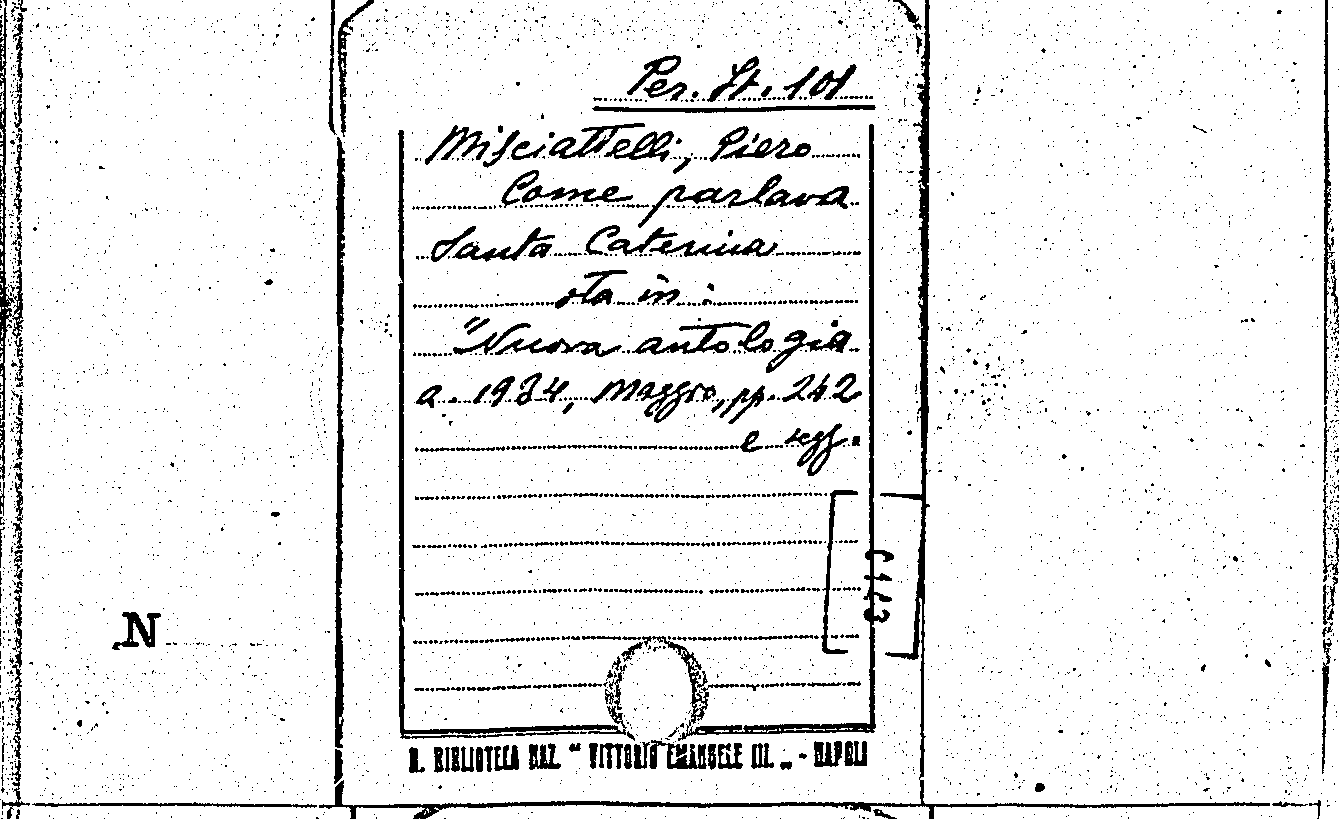 Per. It. 101
Misciattelli, Piero
Come parlava
Santa Caterina
sta in :
"Nuova antologia
a. 1934, Maggio, pp. 242
e segg.
N
R. BIBLIOTECA NAZ. " VITTORIO EMANUELE III. „ - NAPOLI